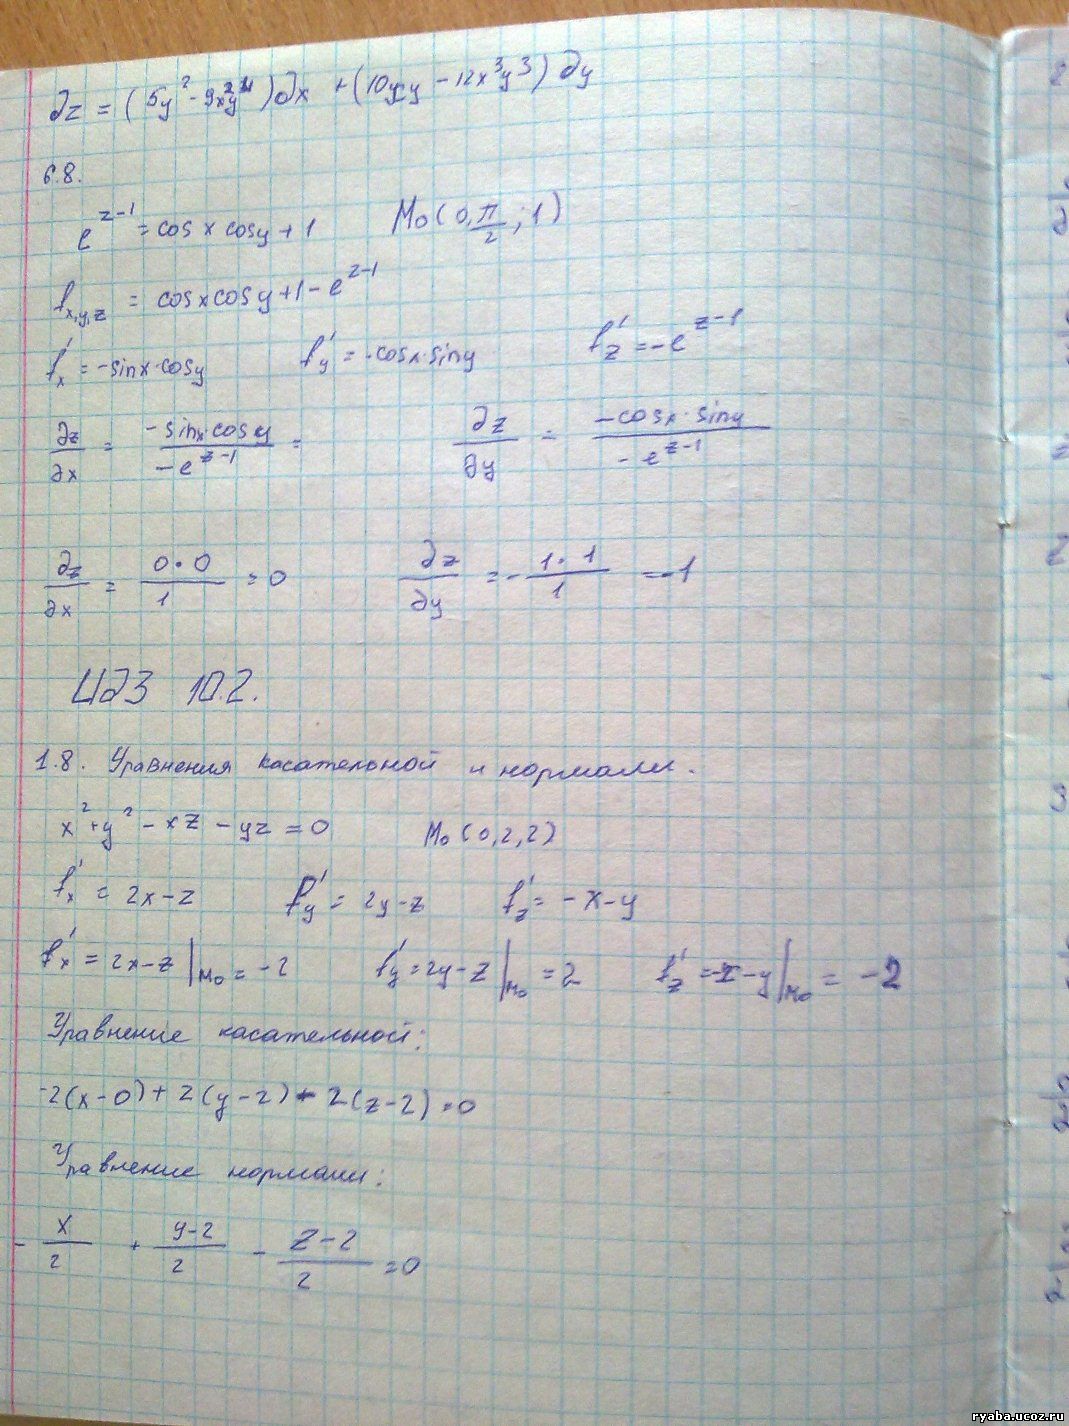 ∂z = (5y² - 9x²y⁴)∂x + (10xy - 12x³y³)∂y
6.8.
e^(z-1) = cos x cosy + 1   M₀(0, π/2; 1)
f_x,y,z = cosxcosy+1-e^(z-1)
f'_x = -sinx·cosy   f'_y = -cosx·siny   f'_z = -e^(z-1)
∂z/∂x = (-sinx·cosy)/(-e^(z-1)) =   ∂z/∂y = (-cosx·siny)/(-e^(z-1))
∂z/∂x = (0·0)/1 = 0   ∂z/∂y = -(1·1)/1 = -1
ИДЗ 10.2.
1.8. Уравнения касательной и нормали.
x² + y² - xz - yz = 0   M₀(0,2,2)
f'_x = 2x-z   f'_y = 2y-z   f'_z = -x-y
f'_x = 2x-z|_M₀ = -2   f'_y = 2y-z|_M₀ = 2   f'_z = -x-y|_M₀ = -2
Уравнение касательной:
-2(x-0)+2(y-2)-2(z-2)=0
Уравнение нормали:
- x/2 + (y-2)/2 - (z-2)/2 = 0
ryaba.ucoz.ru